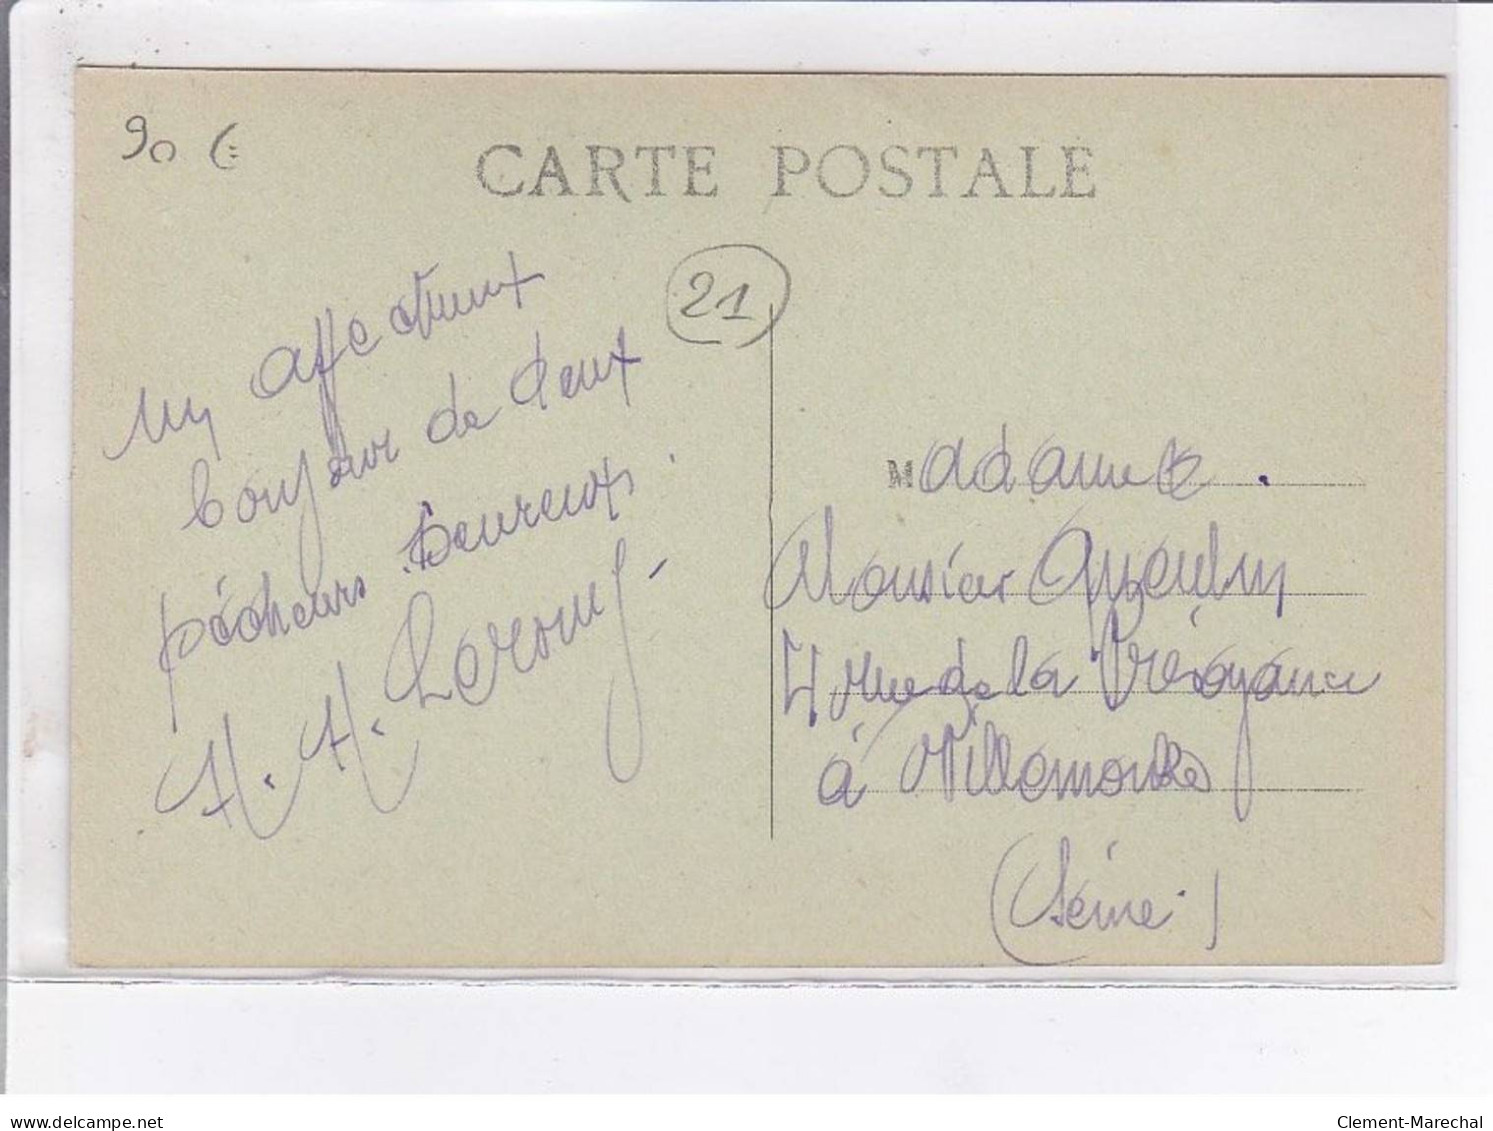 90 €
CARTE POSTALE
21
Un affectueux
bonjour de deux
pêcheurs heureux.
H. H.
Madame &
Monsieur
4 rue de la Prévoyance
à Villemomble
(Seine)
delcampe.net
Clement-Marechal